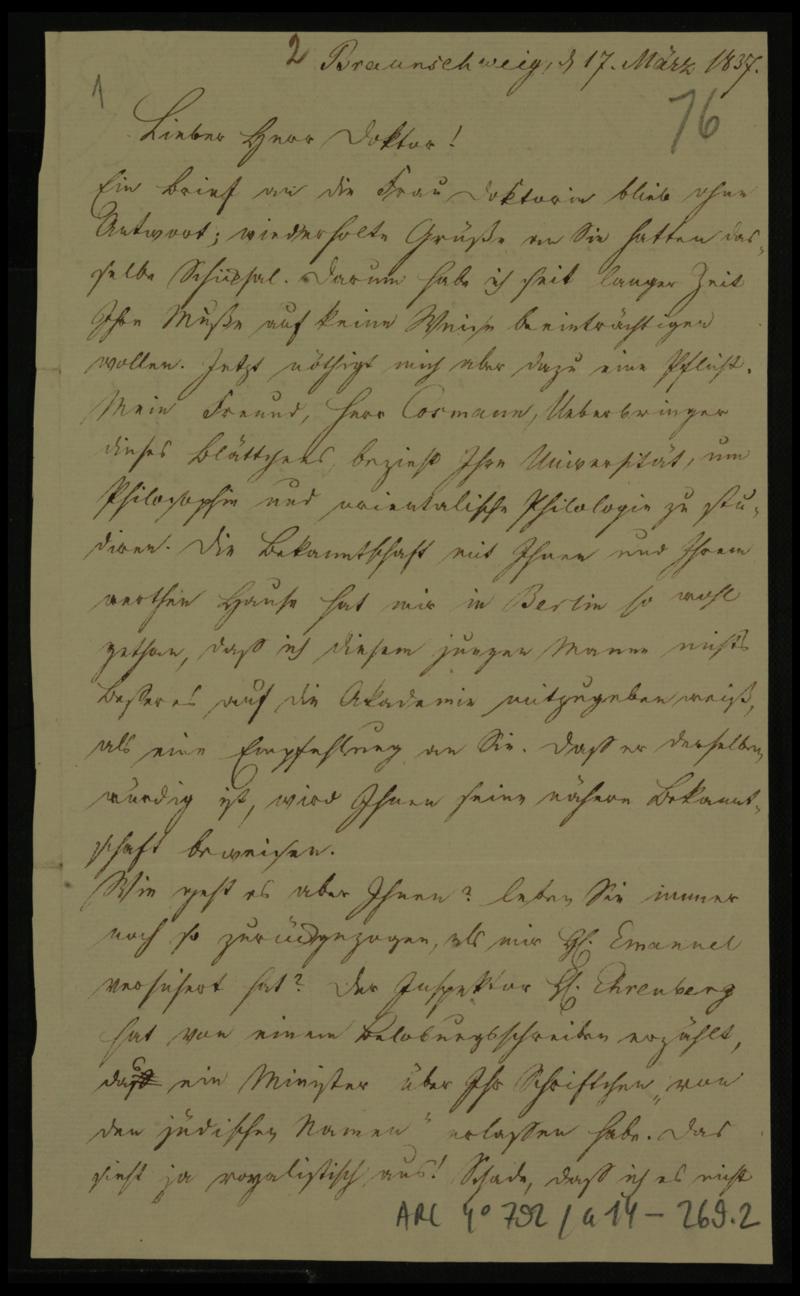 2 Braunschweig, d 17. März 1837.
1
76
Lieber Herr Doktor!
Ein Brief an die Frau Doktorin blieb ohne
Antwort; wiederholte Grüße an Sie hatten das-
selbe Schicksal. Darum habe ich seit langer Zeit
Ihre Muße auf keine Weise beeinträchtigen
wollen. Jetzt nöthigt mich aber dazu eine Pflicht.
Mein Freund, Herr Cosmann, Ueberbringer
dieses Blättchens, bezieht Ihre Universität, um
Philosophie und orientalische Philologie zu stu-
diren. Die Bekanntschaft mit Ihnen und Ihrem
werthen Hause hat mir in Berlin so wohl
gethan, daß ich diesem jungen Manne nichts
Besseres auf die Akademie mitzugeben weiß,
als eine Empfehlung an Sie. Daß er derselben
würdig ist, wird Ihnen seine nähere Bekannt-
schaft beweisen.
Wie geht es aber Ihnen? Leben Sie immer
noch so zurückgezogen, als mir H. Emanuel
versichert hat? Der Inspektor H. Ehrenberg
hat von einem Belobungsschreiben erzählt,
das ein Minister über Ihr Schriftchen „von
den jüdischen Namen“ erlassen habe. Das
sieht ja royalistisch aus! Schade, daß ich es nicht
ARC 4° 792 / a 14 – 269.2